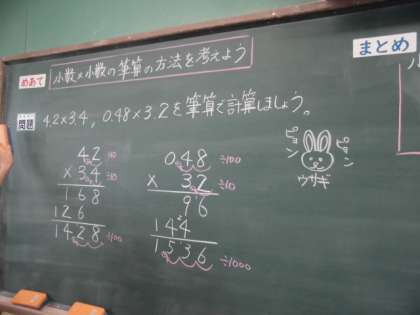 めあて 小数×小数の筆算の方法を考えよう
まとめ
問題 4.2×3.4, 0.48×3.2を筆算で計算しましょう。
4.2 ÷10
× 3.4 ÷10
168
126
14.28 ÷100
0.48 ÷100
× 3.2 ÷10
96
144
1.536 ÷1000
ピョン
ピョン
ウサギ